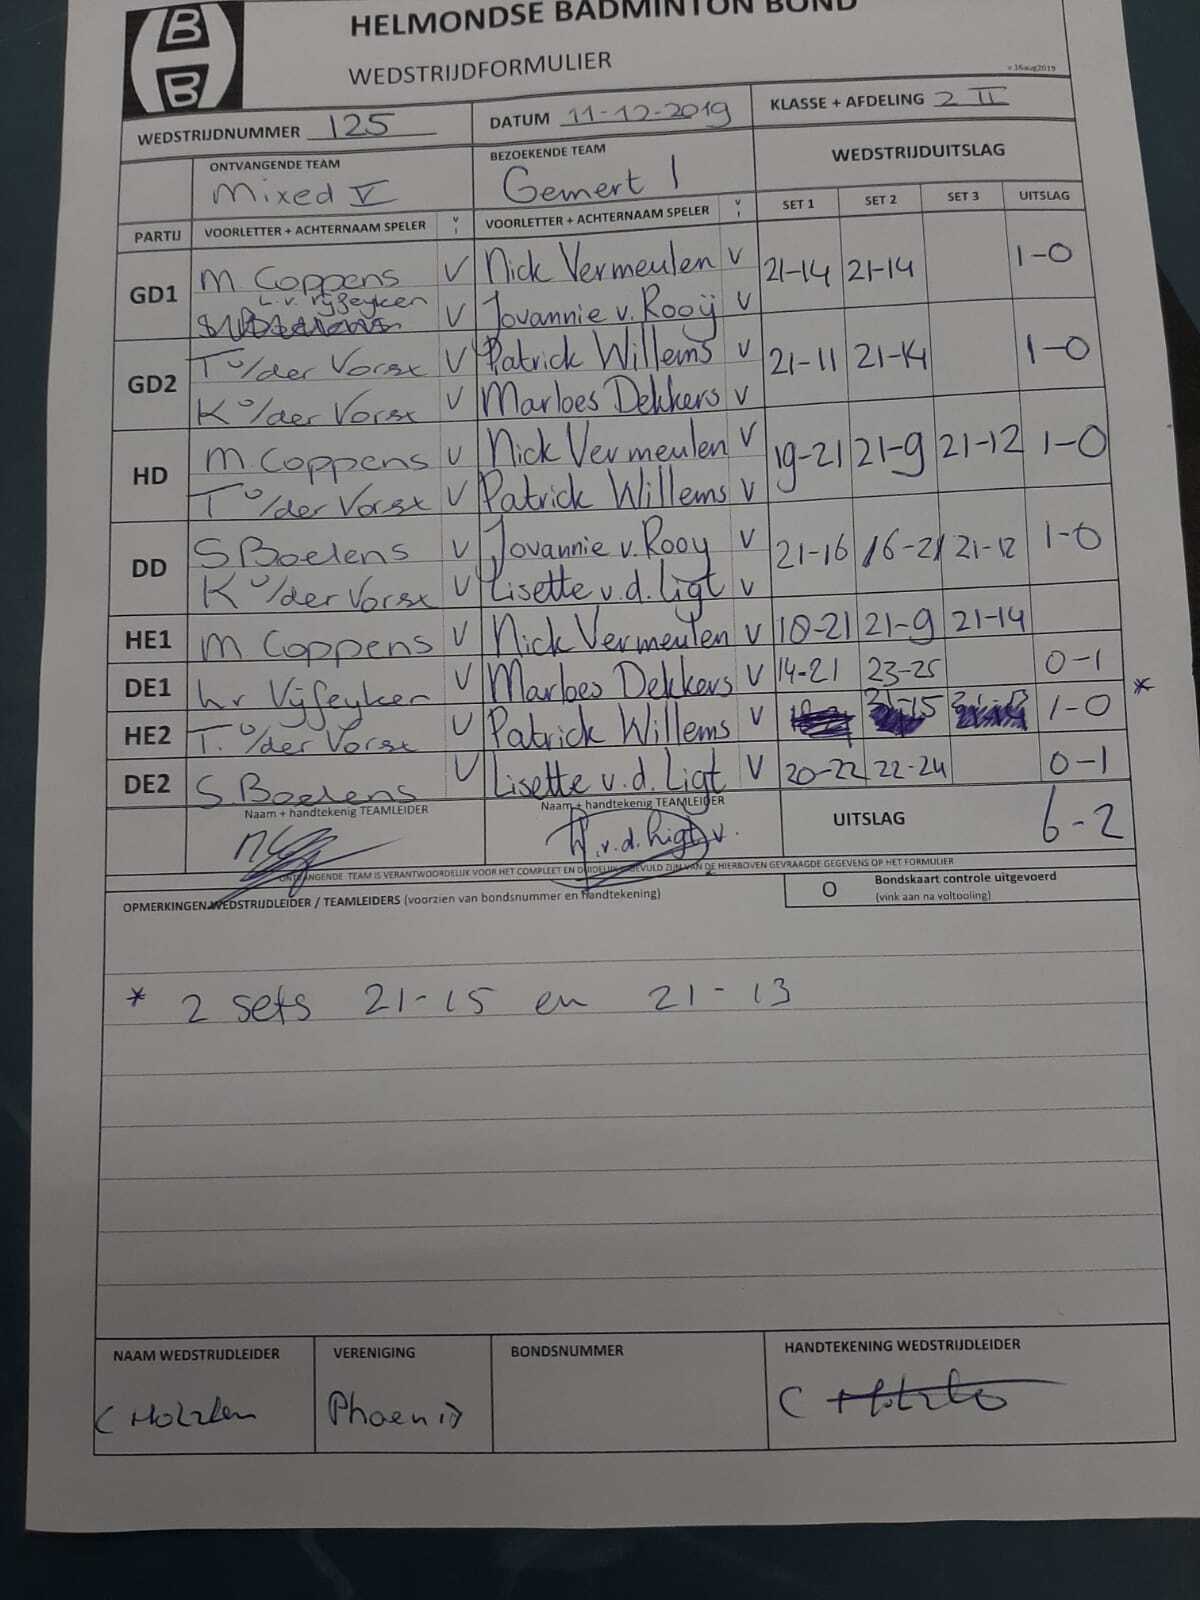 B
B
HELMONDSE BADMINTON BOND
WEDSTRIJDFORMULIER
v.16aug2019
WEDSTRIJDNUMMER 125 DATUM 11-12-2019 KLASSE + AFDELING 2 II
ONTVANGENDE TEAM BEZOEKENDE TEAM WEDSTRIJDUITSLAG
Mixed V Gemert 1
PARTIJ VOORLETTER + ACHTERNAAM SPELER V I VOORLETTER + ACHTERNAAM SPELER V I SET 1 SET 2 SET 3 UITSLAG
GD1 M. Coppens V Nick Vermeulen V 21-14 21-14 1-0
L.v. Vijfeyken V Jovannie v. Rooij V
GD2 T v/der Vorst V Patrick Willems V 21-11 21-14 1-0
K v/der Vorst V Marloes Dekkers V
HD M. Coppens V Nick Vermeulen V 19-21 21-9 21-12 1-0
T v/der Vorst V Patrick Willems V
DD S Boelens V Jovannie v. Rooy V 21-16 16-21 21-12 1-0
K v/der Vorst V Lisette v.d. Ligt V
HE1 M Coppens V Nick Vermeulen V 18-21 21-9 21-14
DE1 Vijfeyken V Marloes Dekkers V 14-21 23-25 0-1
HE2 T. v/der Vorst V Patrick Willems V 1-0 *
DE2 S. Boelens V Lisette v.d. Ligt V 20-22 22-24 0-1
Naam + handtekenig TEAMLEIDER Naam + handtekenig TEAMLEIDER UITSLAG 6-2
v.d. Ligt
ONTVANGENDE TEAM IS VERANTWOORDELIJK VOOR HET COMPLEET EN DUIDELIJK INGEVULD ZIJN VAN DE HIERBOVEN GEVRAAGDE GEGEVENS OP HET FORMULIER
OPMERKINGEN WEDSTRIJDLEIDER / TEAMLEIDERS (voorzien van bondsnummer en handtekening) O Bondskaart controle uitgevoerd
(vink aan na voltooling)
* 2 sets 21-15 en 21-13
NAAM WEDSTRIJDLEIDER VERENIGING BONDSNUMMER HANDTEKENING WEDSTRIJDLEIDER
C Phoenix C